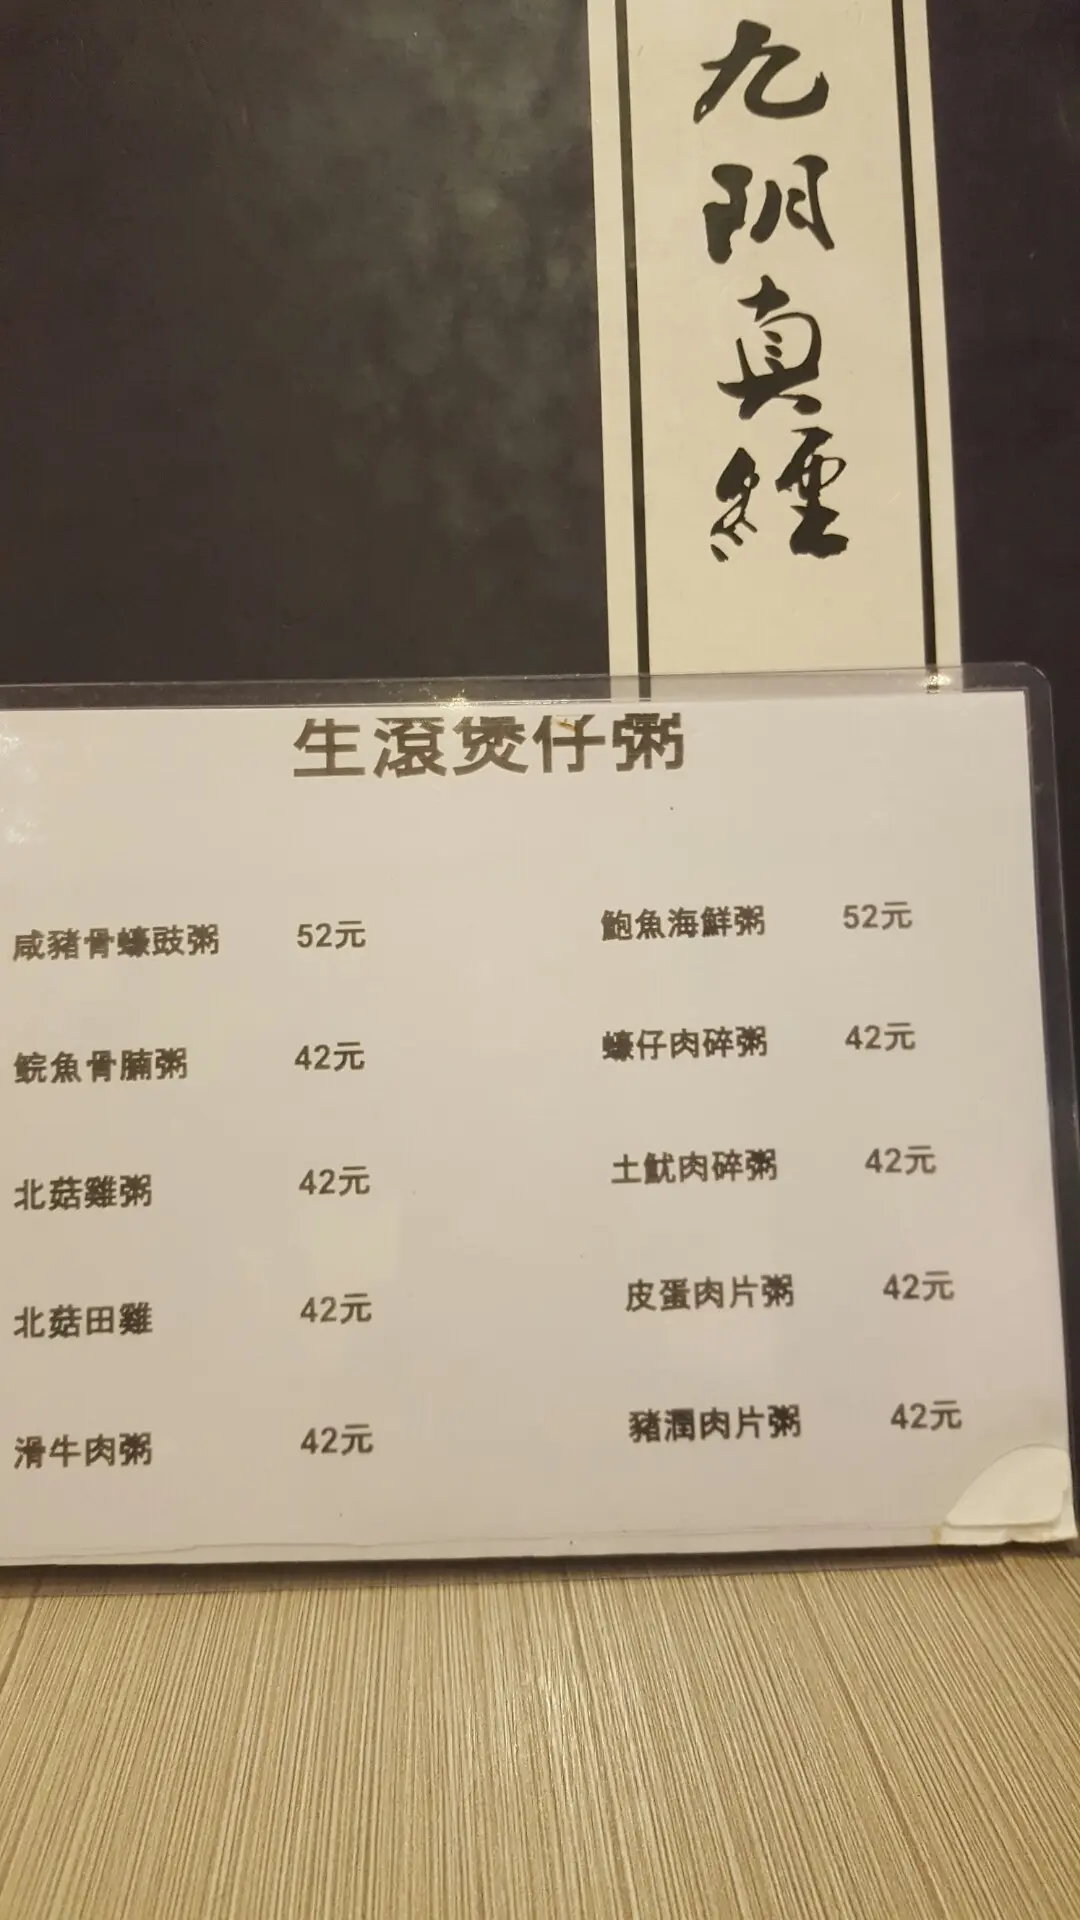 九阴真經
生滾煲仔粥
咸豬骨蠔豉粥 52元
鮑魚海鮮粥 52元
鯇魚骨腩粥 42元
蠔仔肉碎粥 42元
北菇雞粥 42元
土魷肉碎粥 42元
北菇田雞 42元
皮蛋肉片粥 42元
滑牛肉粥 42元
豬潤肉片粥 42元